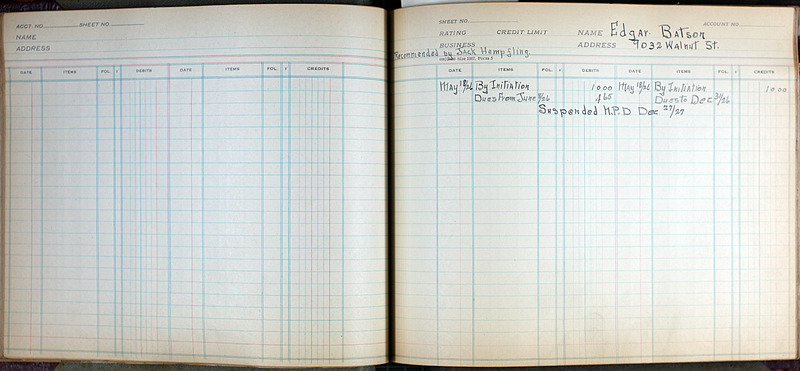 ACCT. NO. SHEET NO.
NAME
ADDRESS
DATE ITEMS FOL. DEBITS DATE ITEMS FOL. CREDITS
SHEET NO. ACCOUNT NO.
RATING CREDIT LIMIT NAME Edgar Batson
BUSINESS ADDRESS 7032 Walnut St.
Recommended by Jack Hempfling.
DATE ITEMS FOL. DEBITS DATE ITEMS FOL. CREDITS
May 18/26 By Initiation 10 00 May 18/26 By Initiation 10 00
Dues From June 8/26 4 65 Dues to Dec 31/26
Suspended N.P.D Dec 27/27